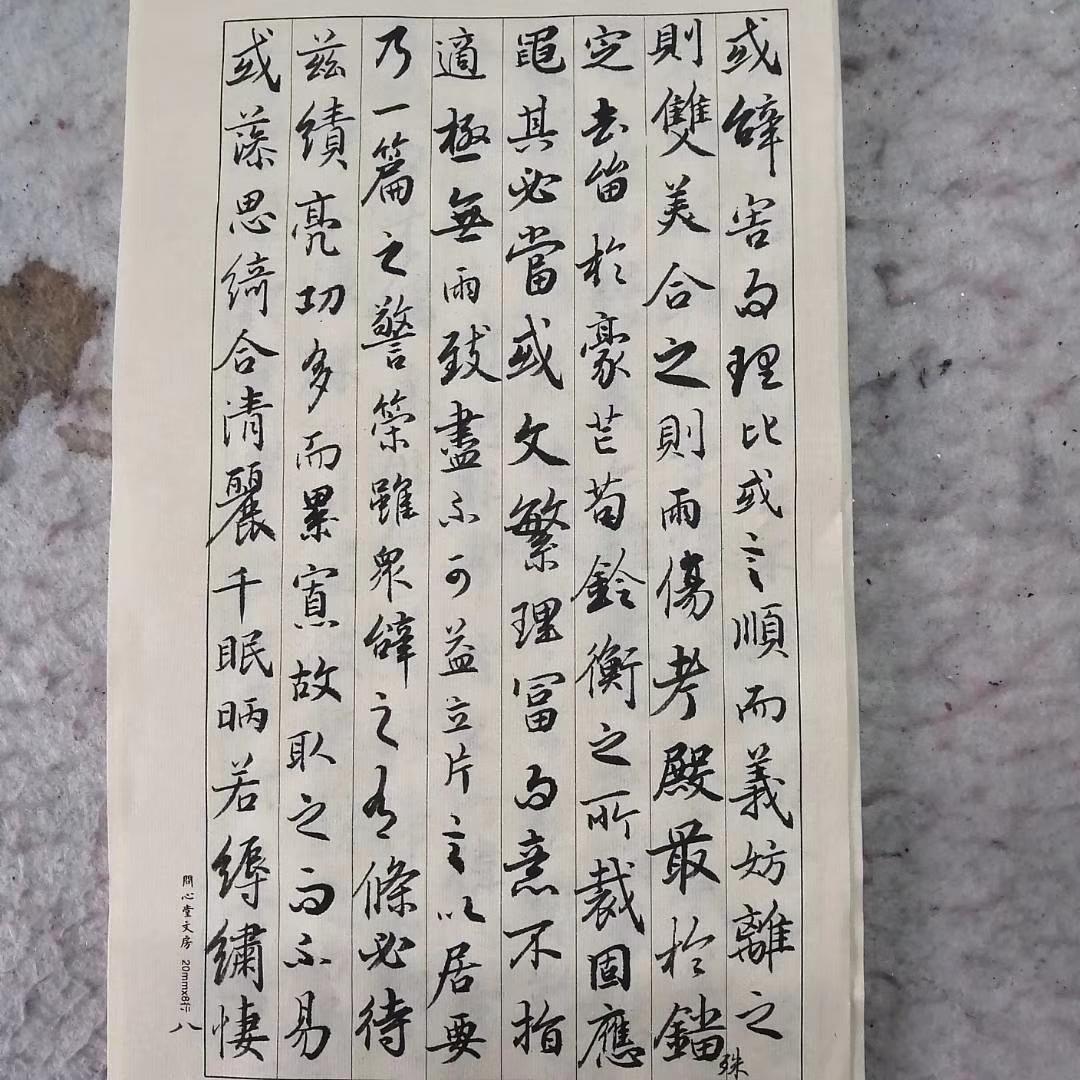 或辭害而理比或言順而義妨離之
則雙美合之則兩傷考殿最於錙殊
定去留於豪芒苟銓衡之所裁固應
繩其必當或文繁理富而意不指
適極無兩致盡不可益立片言以居要
乃一篇之警策雖衆辭之有條必待
茲績亮功多而累寡故取之而不易
或藻思綺合清麗千眠昞若縟繡悽
問心堂文房 20mmx8行 八